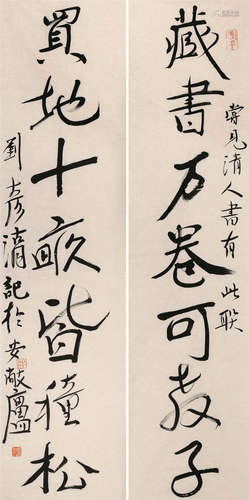 藏書万卷可教子
常見清人書有此联
買地十畝皆種松
劉彦清記於安敲廬